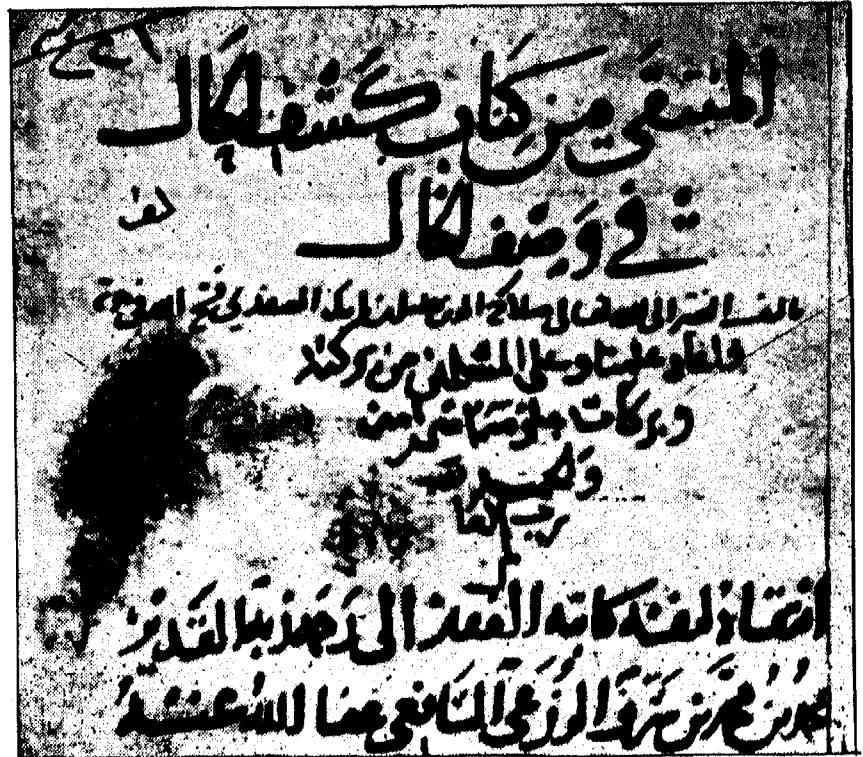 المنتقى من كتاب كشف الحال
في وصف الخال
تاليف الفقير الى الله تعالى صلاح الدين خليل بن ايبك الصفدي فسح الله في مدته
وافاد علينا وعلى المسلمين من بركته
وبركات علومه امين
والحمد لله
رب العا
انتقاه لنفسه كاتبه الفقير الى رحمة ربه القدير
محمد بن محمد بن الزرعي الشافعي عفا الله عنه